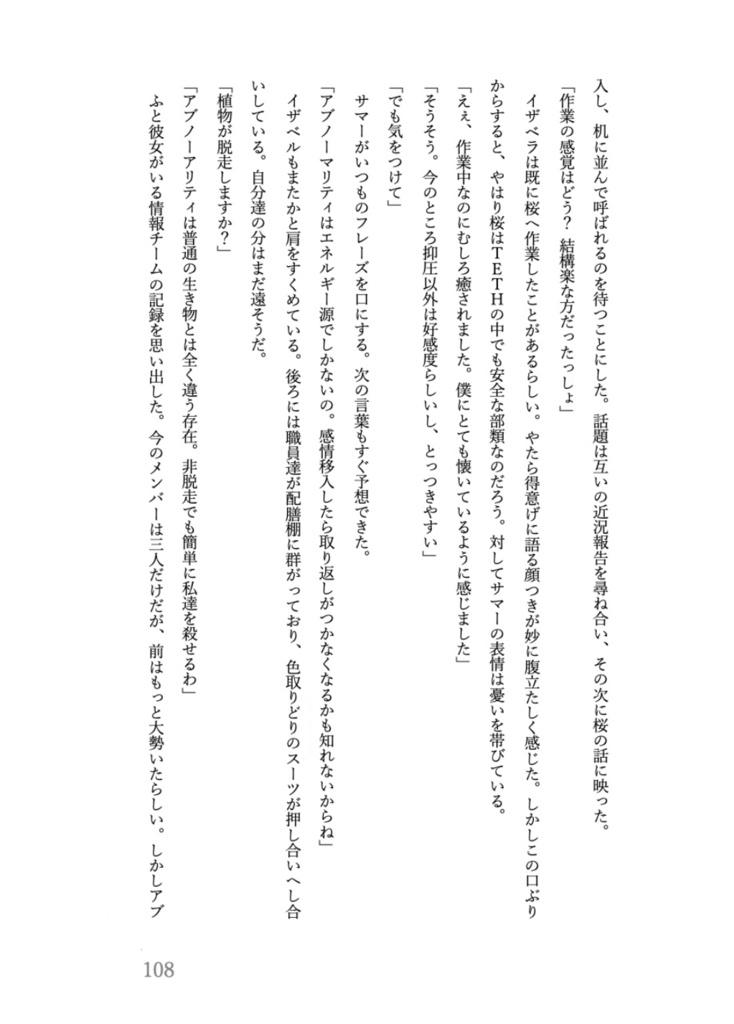 入し、机に並んで呼ばれるのを待つことにした。話題は互いの近況報告を尋ね合い、その次に桜の話に映った。
「作業の感覚はどう？　結構楽な方だったっしょ」
　イザベラは既に桜へ作業したことがあるらしい。やたら得意げに語る顔つきが妙に腹立たしく感じた。しかしこの口ぶり
からすると、やはり桜はＴＥＴＨの中でも安全な部類なのだろう。対してサマーの表情は憂いを帯びている。
「えぇ、作業中なのにむしろ癒されました。僕にとても懐いているように感じました」
「そうそう。今のところ抑圧以外は好感度らしいし、とっつきやすい」
「でも気をつけて」
　サマーがいつものフレーズを口にする。次の言葉もすぐ予想できた。
「アブノーマリティはエネルギー源でしかないの。感情移入したら取り返しがつかなくなるかも知れないからね」
　イザベルもまたかと肩をすくめている。後ろには職員達が配膳棚に群がっており、色取りどりのスーツが押し合いへし合
いしている。自分達の分はまだ遠そうだ。
「植物が脱走しますか？」
「アブノーアリティは普通の生き物とは全く違う存在。非脱走でも簡単に私達を殺せるわ」
　ふと彼女がいる情報チームの記録を思い出した。今のメンバーは三人だけだが、前はもっと大勢いたらしい。しかしアブ
108